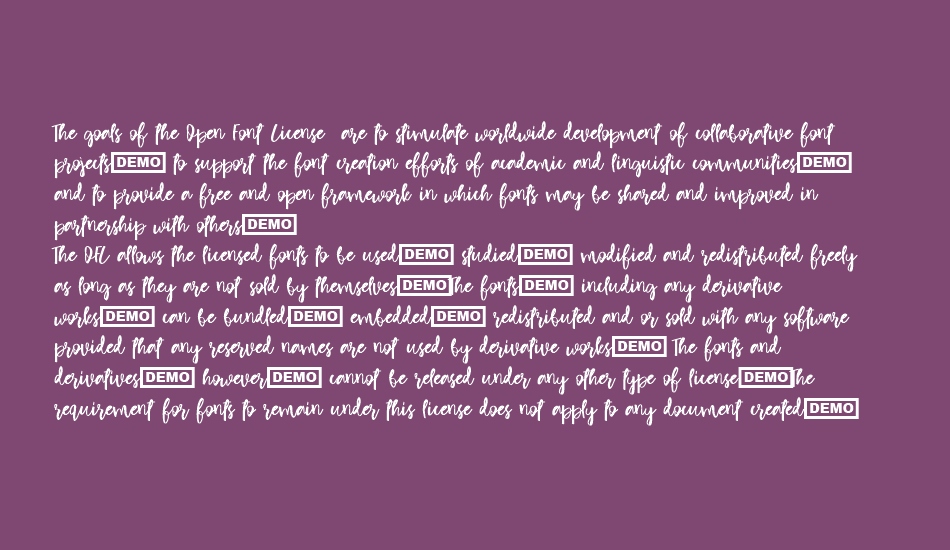 The goals of the Open Font License are to stimulate worldwide development of collaborative font
projectsDEMO to support the font creation efforts of academic and linguistic communitiesDEMO
and to provide a free and open framework in which fonts may be shared and improved in
partnership with othersDEMO
The OFL allows the licensed fonts to be usedDEMO studiedDEMO modified and redistributed freely
as long as they are not sold by themselvesDEMOThe fontsDEMO including any derivative
worksDEMO can be bundledDEMO embeddedDEMO redistributed and or sold with any software
provided that any reserved names are not used by derivative worksDEMO The fonts and
derivativesDEMO howeverDEMO cannot be released under any other type of licenseDEMOThe
requirement for fonts to remain under this license does not apply to any document createdDEMO